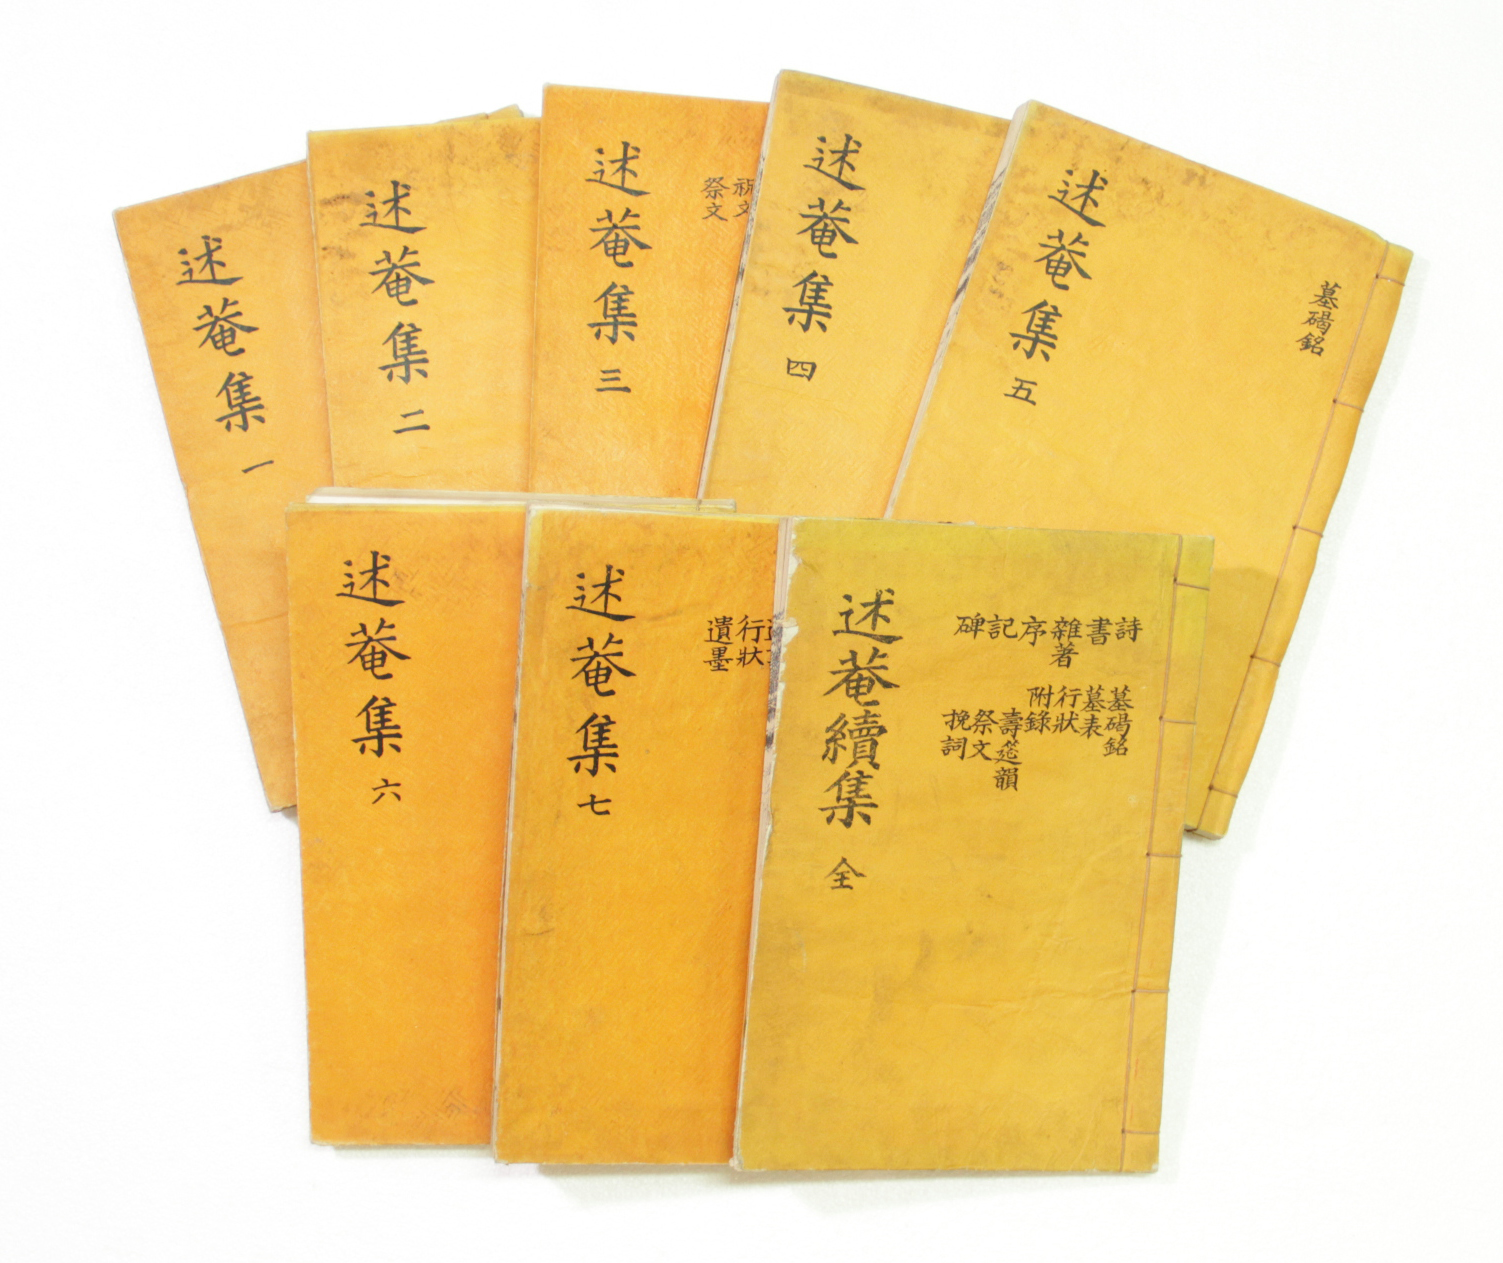 述菴集 一
述菴集 二
述菴集 三
祝文
祭文
述菴集 四
述菴集 五
墓碣銘
述菴集 六
述菴集 七
行狀
遺墨
述菴續集 全
詩
書
雜著
序
記
碑
墓碣銘
墓表
行狀
附錄
壽筵韻
祭文
挽詞